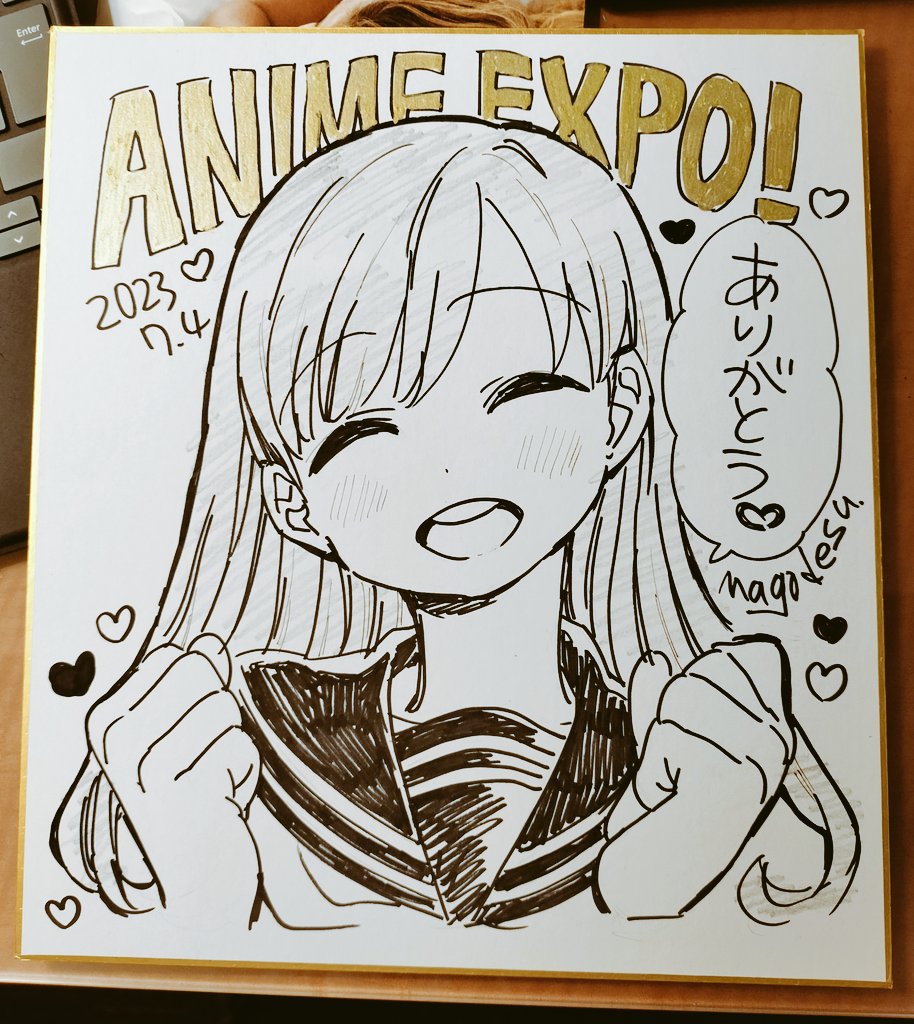 Enter
ANIME EXPO!
2023
7.4
ありがとう
nagodesu.